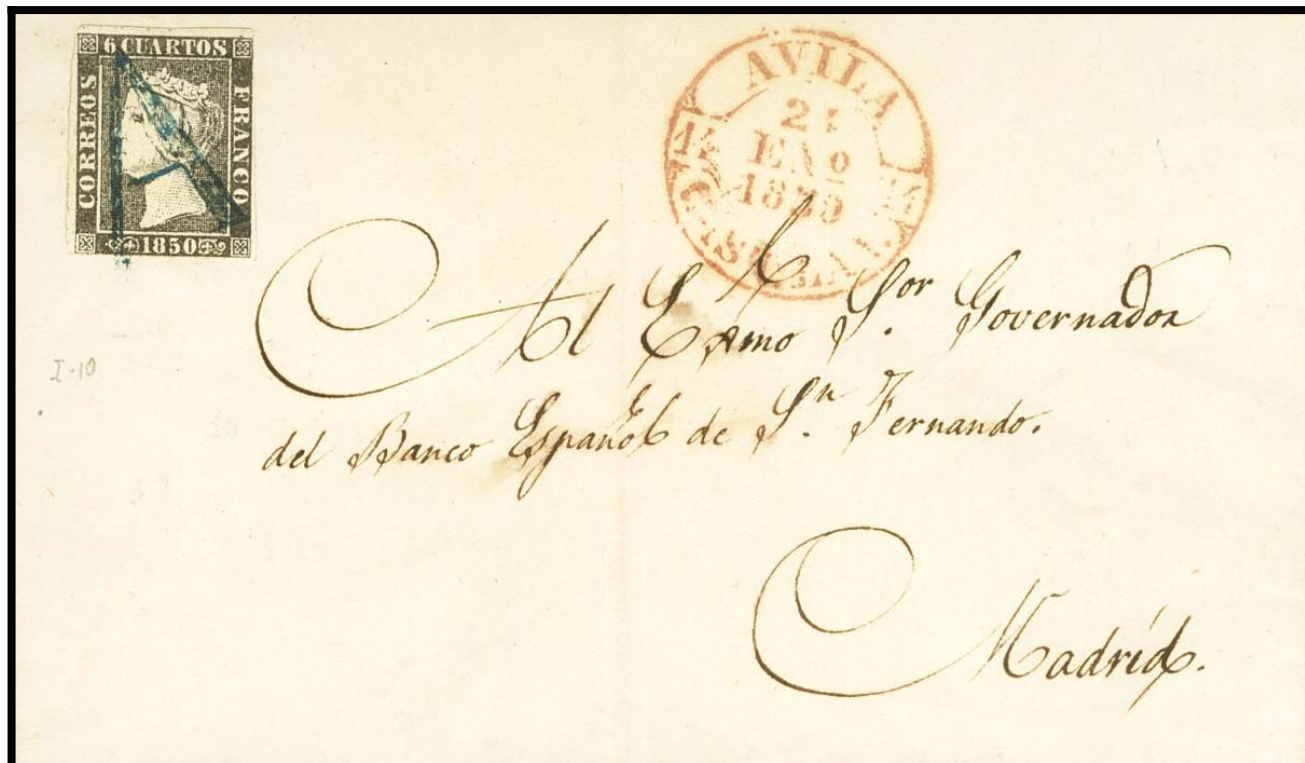 6 CUARTOS
CORREOS
FRANCO
1850
A
AVILA
EN.º
Al Exmo S.or Governador
del Banco Español de S.n Fernando.
Madrid.
I-10